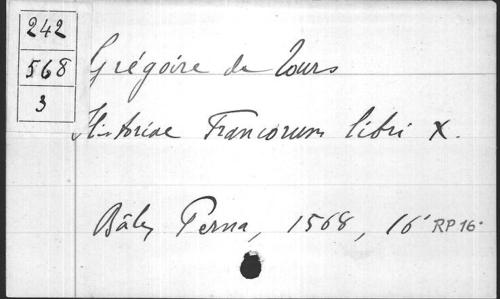 242
568
3
Grégoire de Tours
Historiae Francorum libri X.
Bâle, Perna, 1568, 16° RP 16.